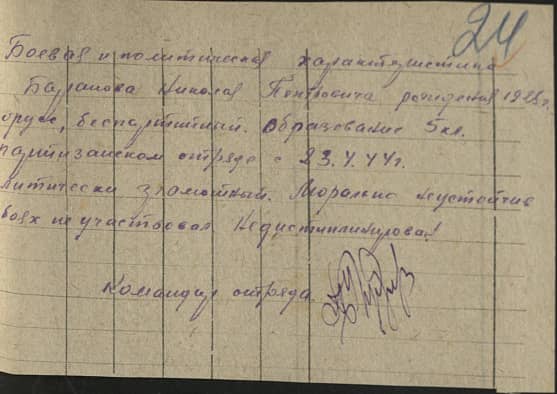 24
Боевая и политическая характеристика
Баранова Николая Петровича рождения 1928 г.
орус, беспартийный. Образование 5 кл.
партизанском отряде с 23.4.44 г.
литически грамотный. Морально неустойчив
боях не участвовал. Недисциплинирован
Командир отряда